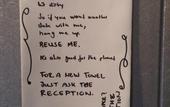 is dirty
So if you want another
date with me,
hang me up.
REUSE ME.
It's also good for the planet
FOR A NEW TOWEL
JUST ASK THE
RECEPTION.
THE